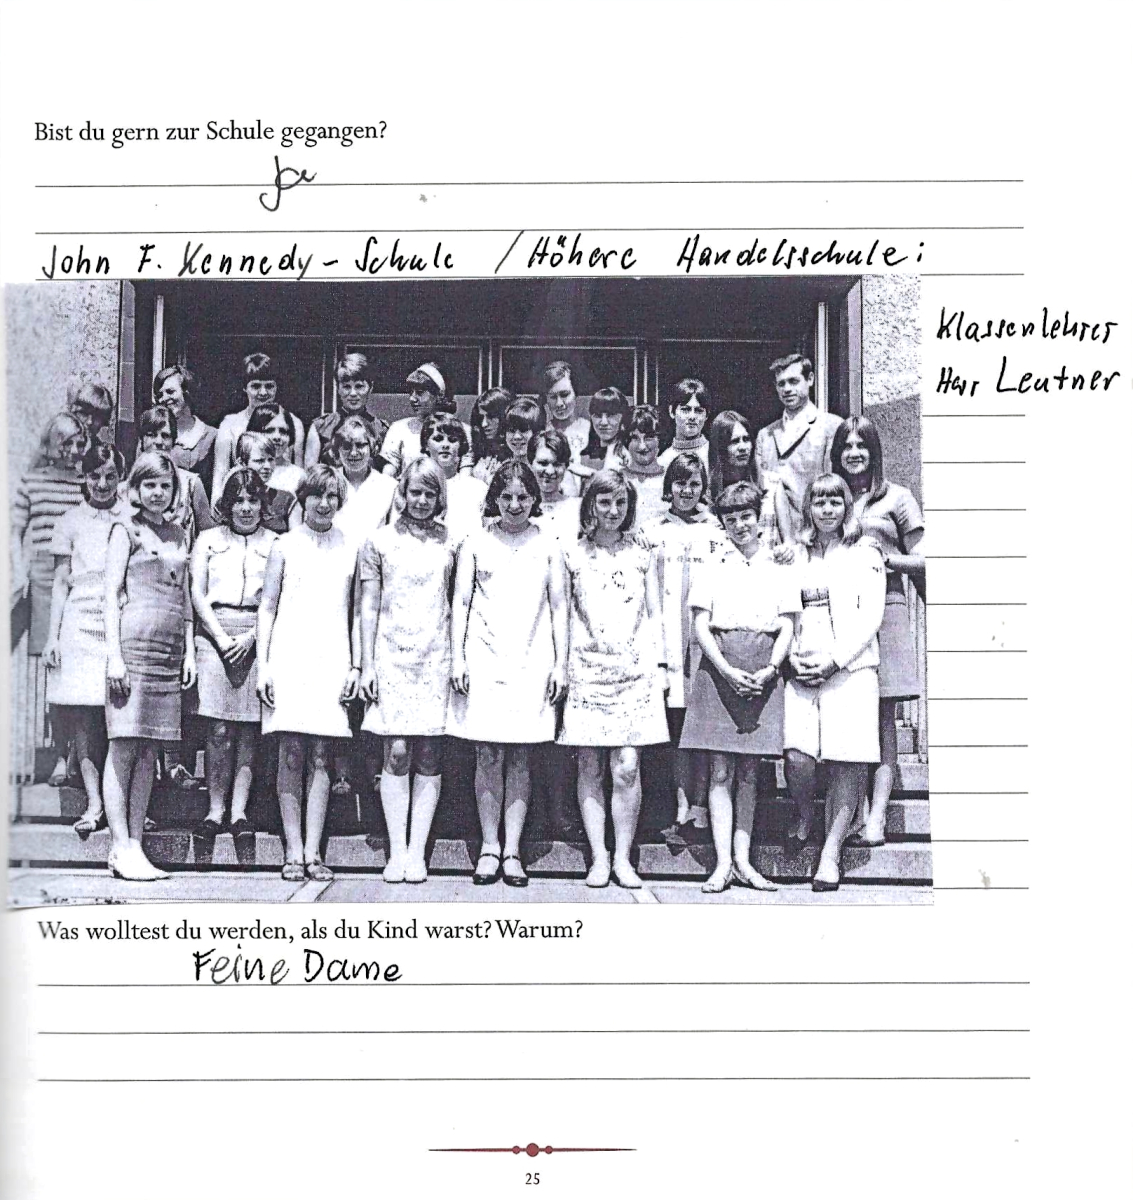 Bist du gern zur Schule gegangen?
Ja
John F. Kennedy - Schule / Höhere Handelsschule:
Klassenlehrer
Herr Leutner
Was wolltest du werden, als du Kind warst? Warum?
Feine Dame
25